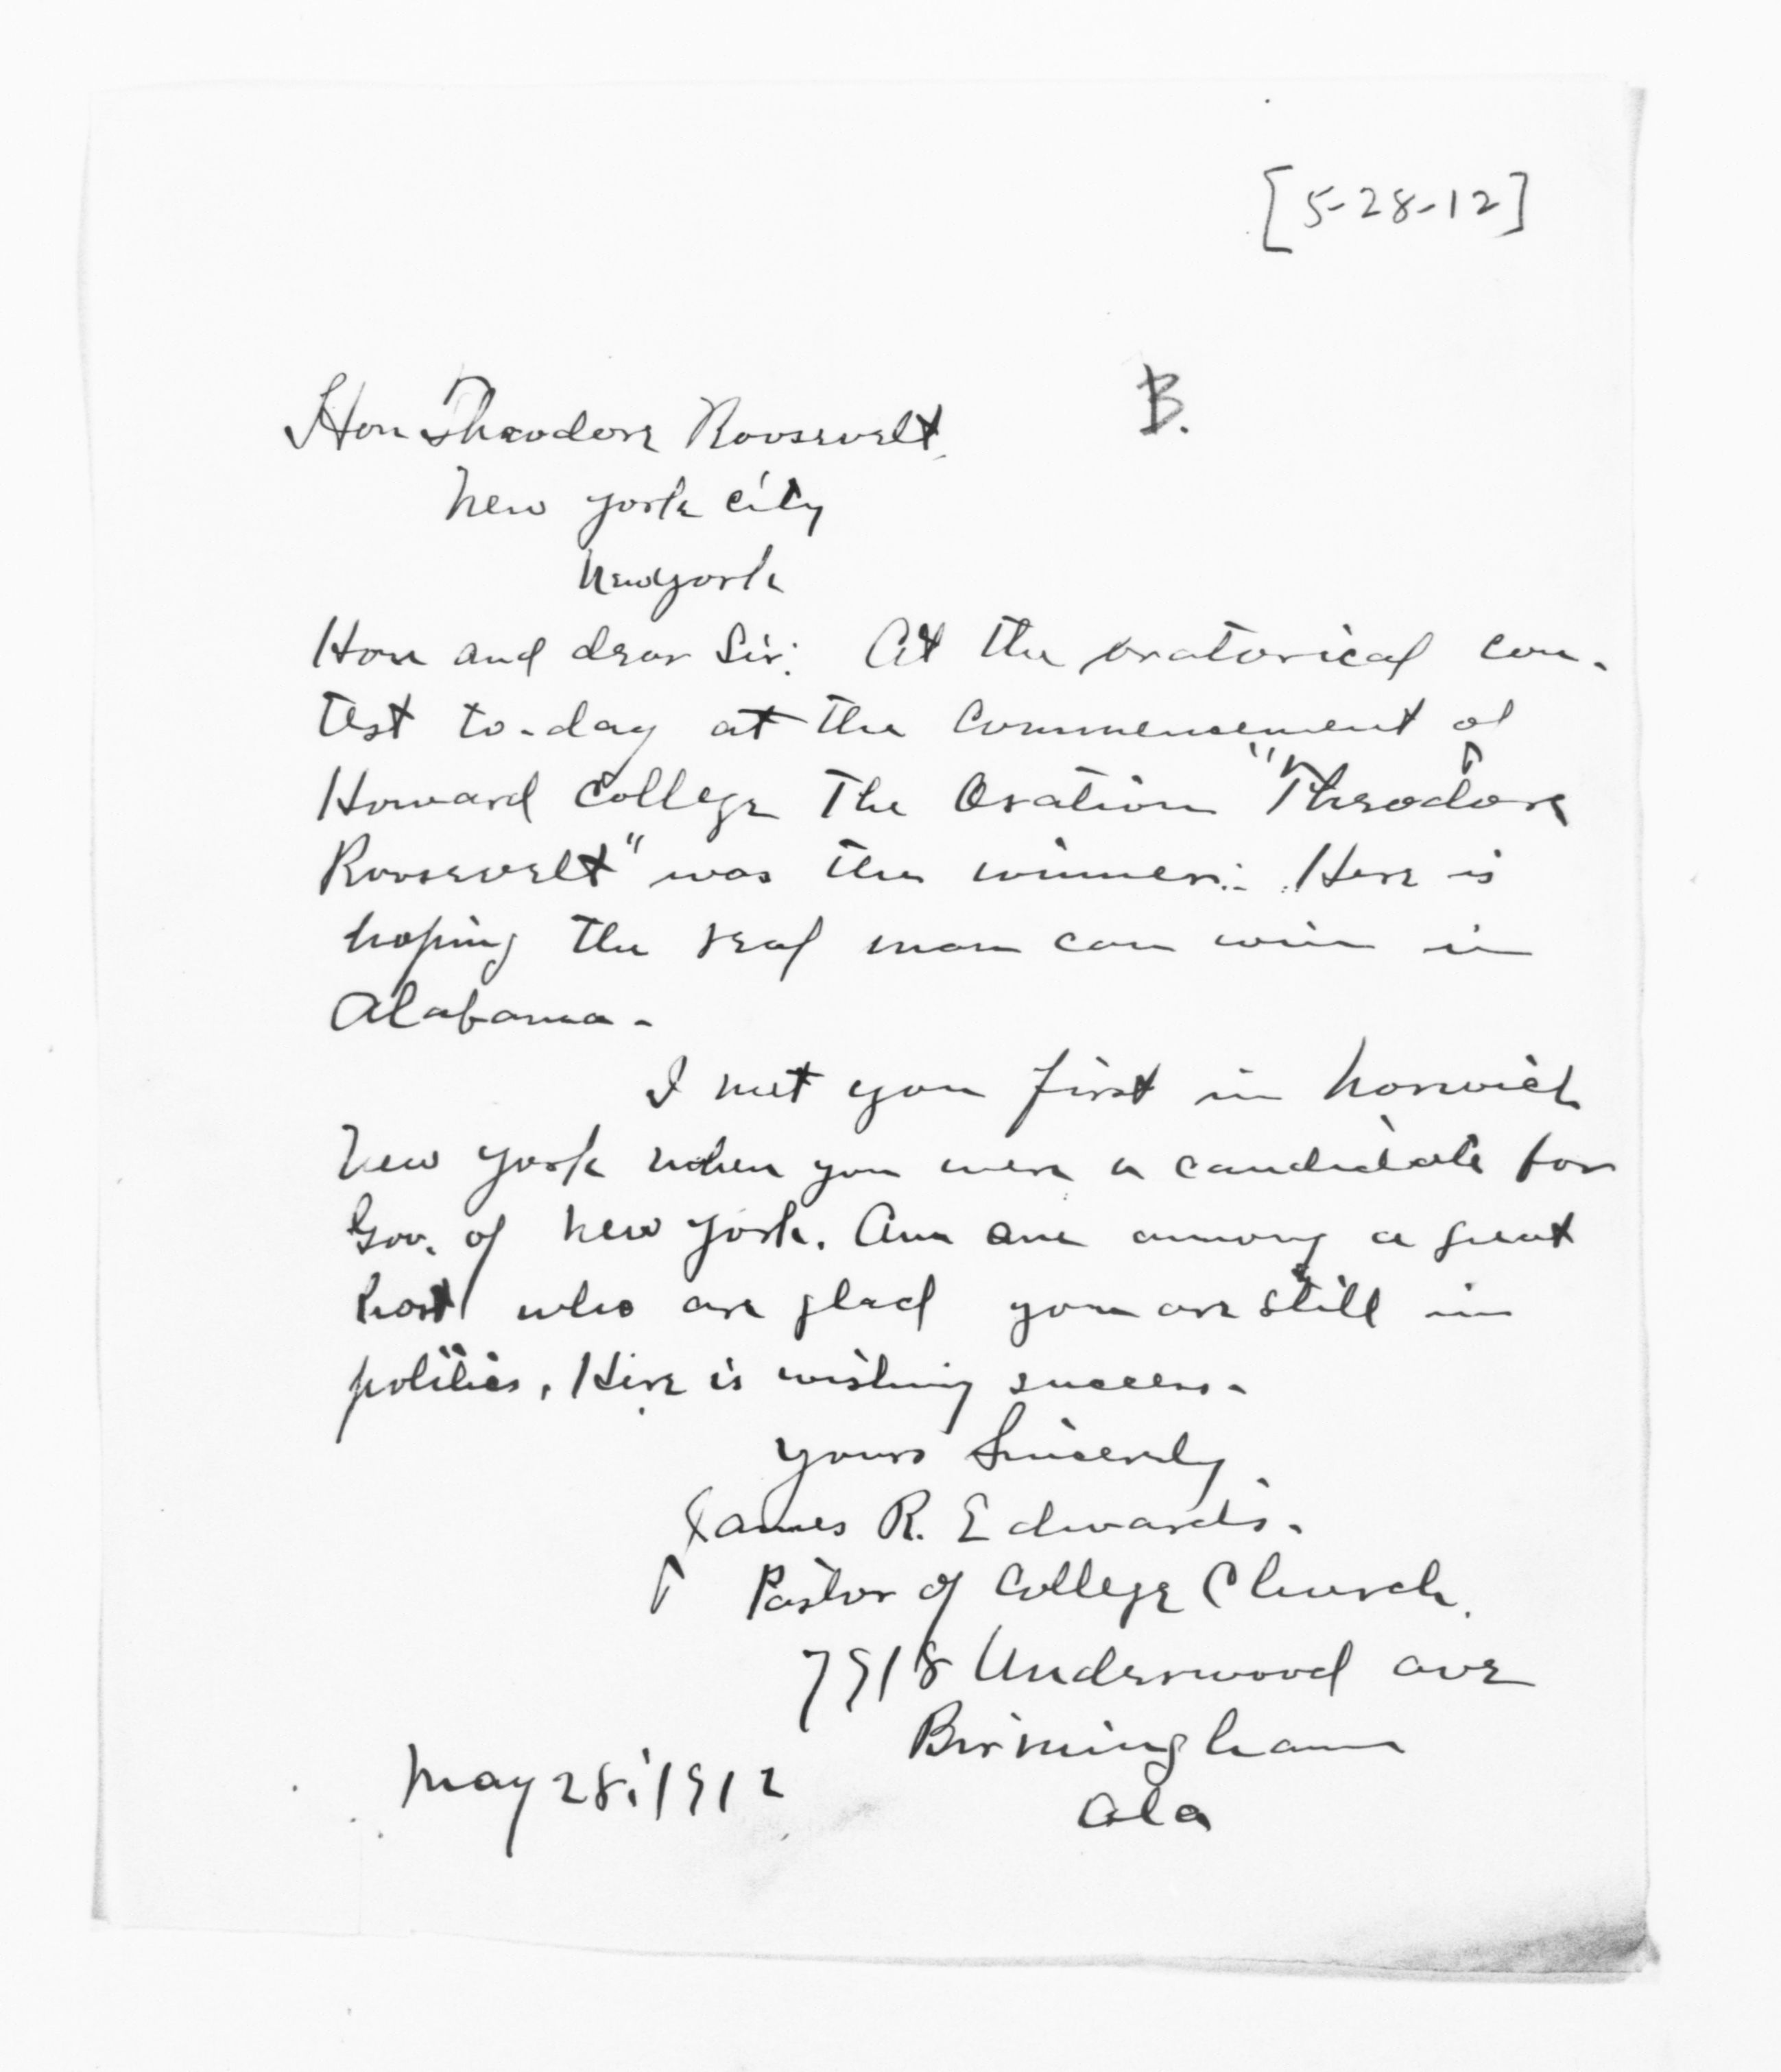 [5-28-12]
B.
Hon Theodore Roosevelt.
New York City
New York
Hon and dear Sir: At the oratorical con-
test to-day at the Commencement of
Howard College The Oration "Theodore
Roosevelt" was the winner. Here is
hoping the real man can win in
Alabama.
I met you first in Norwich
New York when you were a candidate for
Gov. of New York. Am one among a great
host who are glad you are still in
politics. Here is wishing success.
Yours Sincerely
James R. Edwards.
Pastor of College Church.
7918 Underwood ave
Birmingham
Ala
May 28, 1912